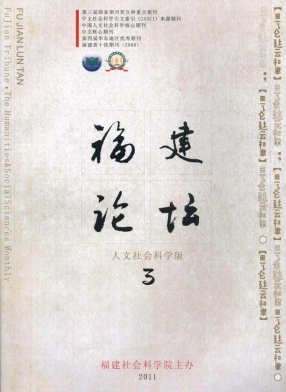 第三届国家期刊奖百种重点期刊
中文社会科学引文索引（CSSCI）来源期刊
中国人文社会科学核心期刊
中文核心期刊
第四届华东地区优秀期刊
福建省十佳期刊（2009）
FU JIAN LUN TAN
Fujian Tribune • The Humanities & Social Sciences Monthly
福建
论坛
人文社会科学版
3
福建社会科学院主办
2011